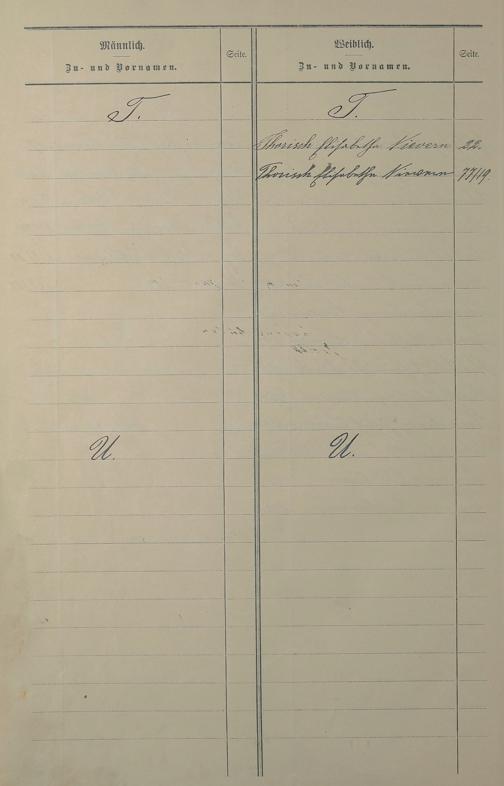 Männlich.
Zu- und Vornamen.
Seite.
Weiblich.
Zu- und Vornamen.
Seite.
T.
T.
Thorisch Elisabetha Nievern 22.
Thorisch Elisabetha Nievern 77/19
U.
U.